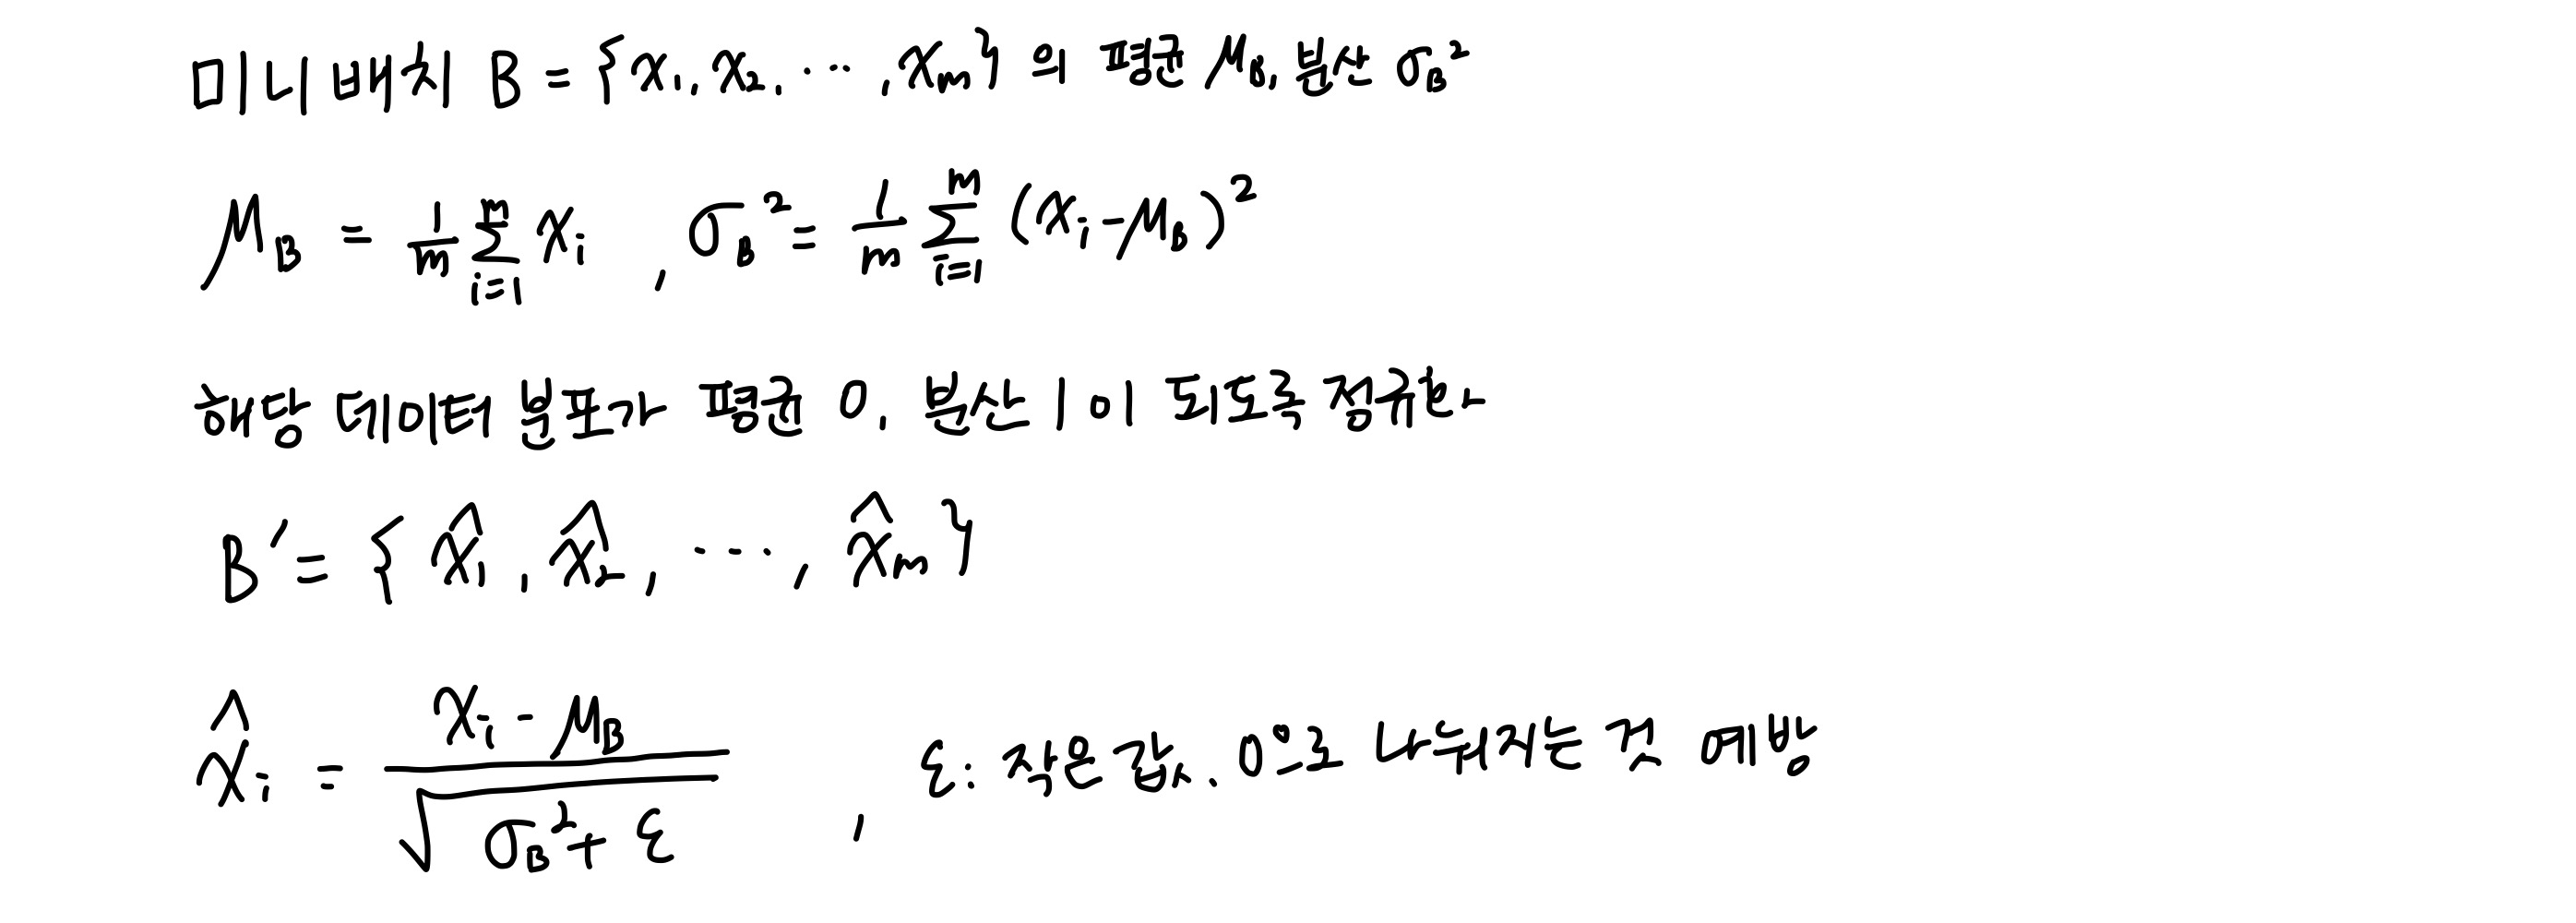 미니배치 B = {x₁, x₂, ⋯, xₘ} 의 평균 μ_B, 분산 σ_B²
μ_B = 1/m Σ_{i=1}^{m} xᵢ , σ_B² = 1/m Σ_{i=1}^{m} (xᵢ - μ_B)²
해당 데이터 분포가 평균 0, 분산 1이 되도록 정규화
B′ = { x̂₁, x̂₂, ⋯, x̂ₘ }
x̂ᵢ = (xᵢ - μ_B) / √(σ_B² + ε) , ε: 작은 값. 0으로 나눠지는 것 예방